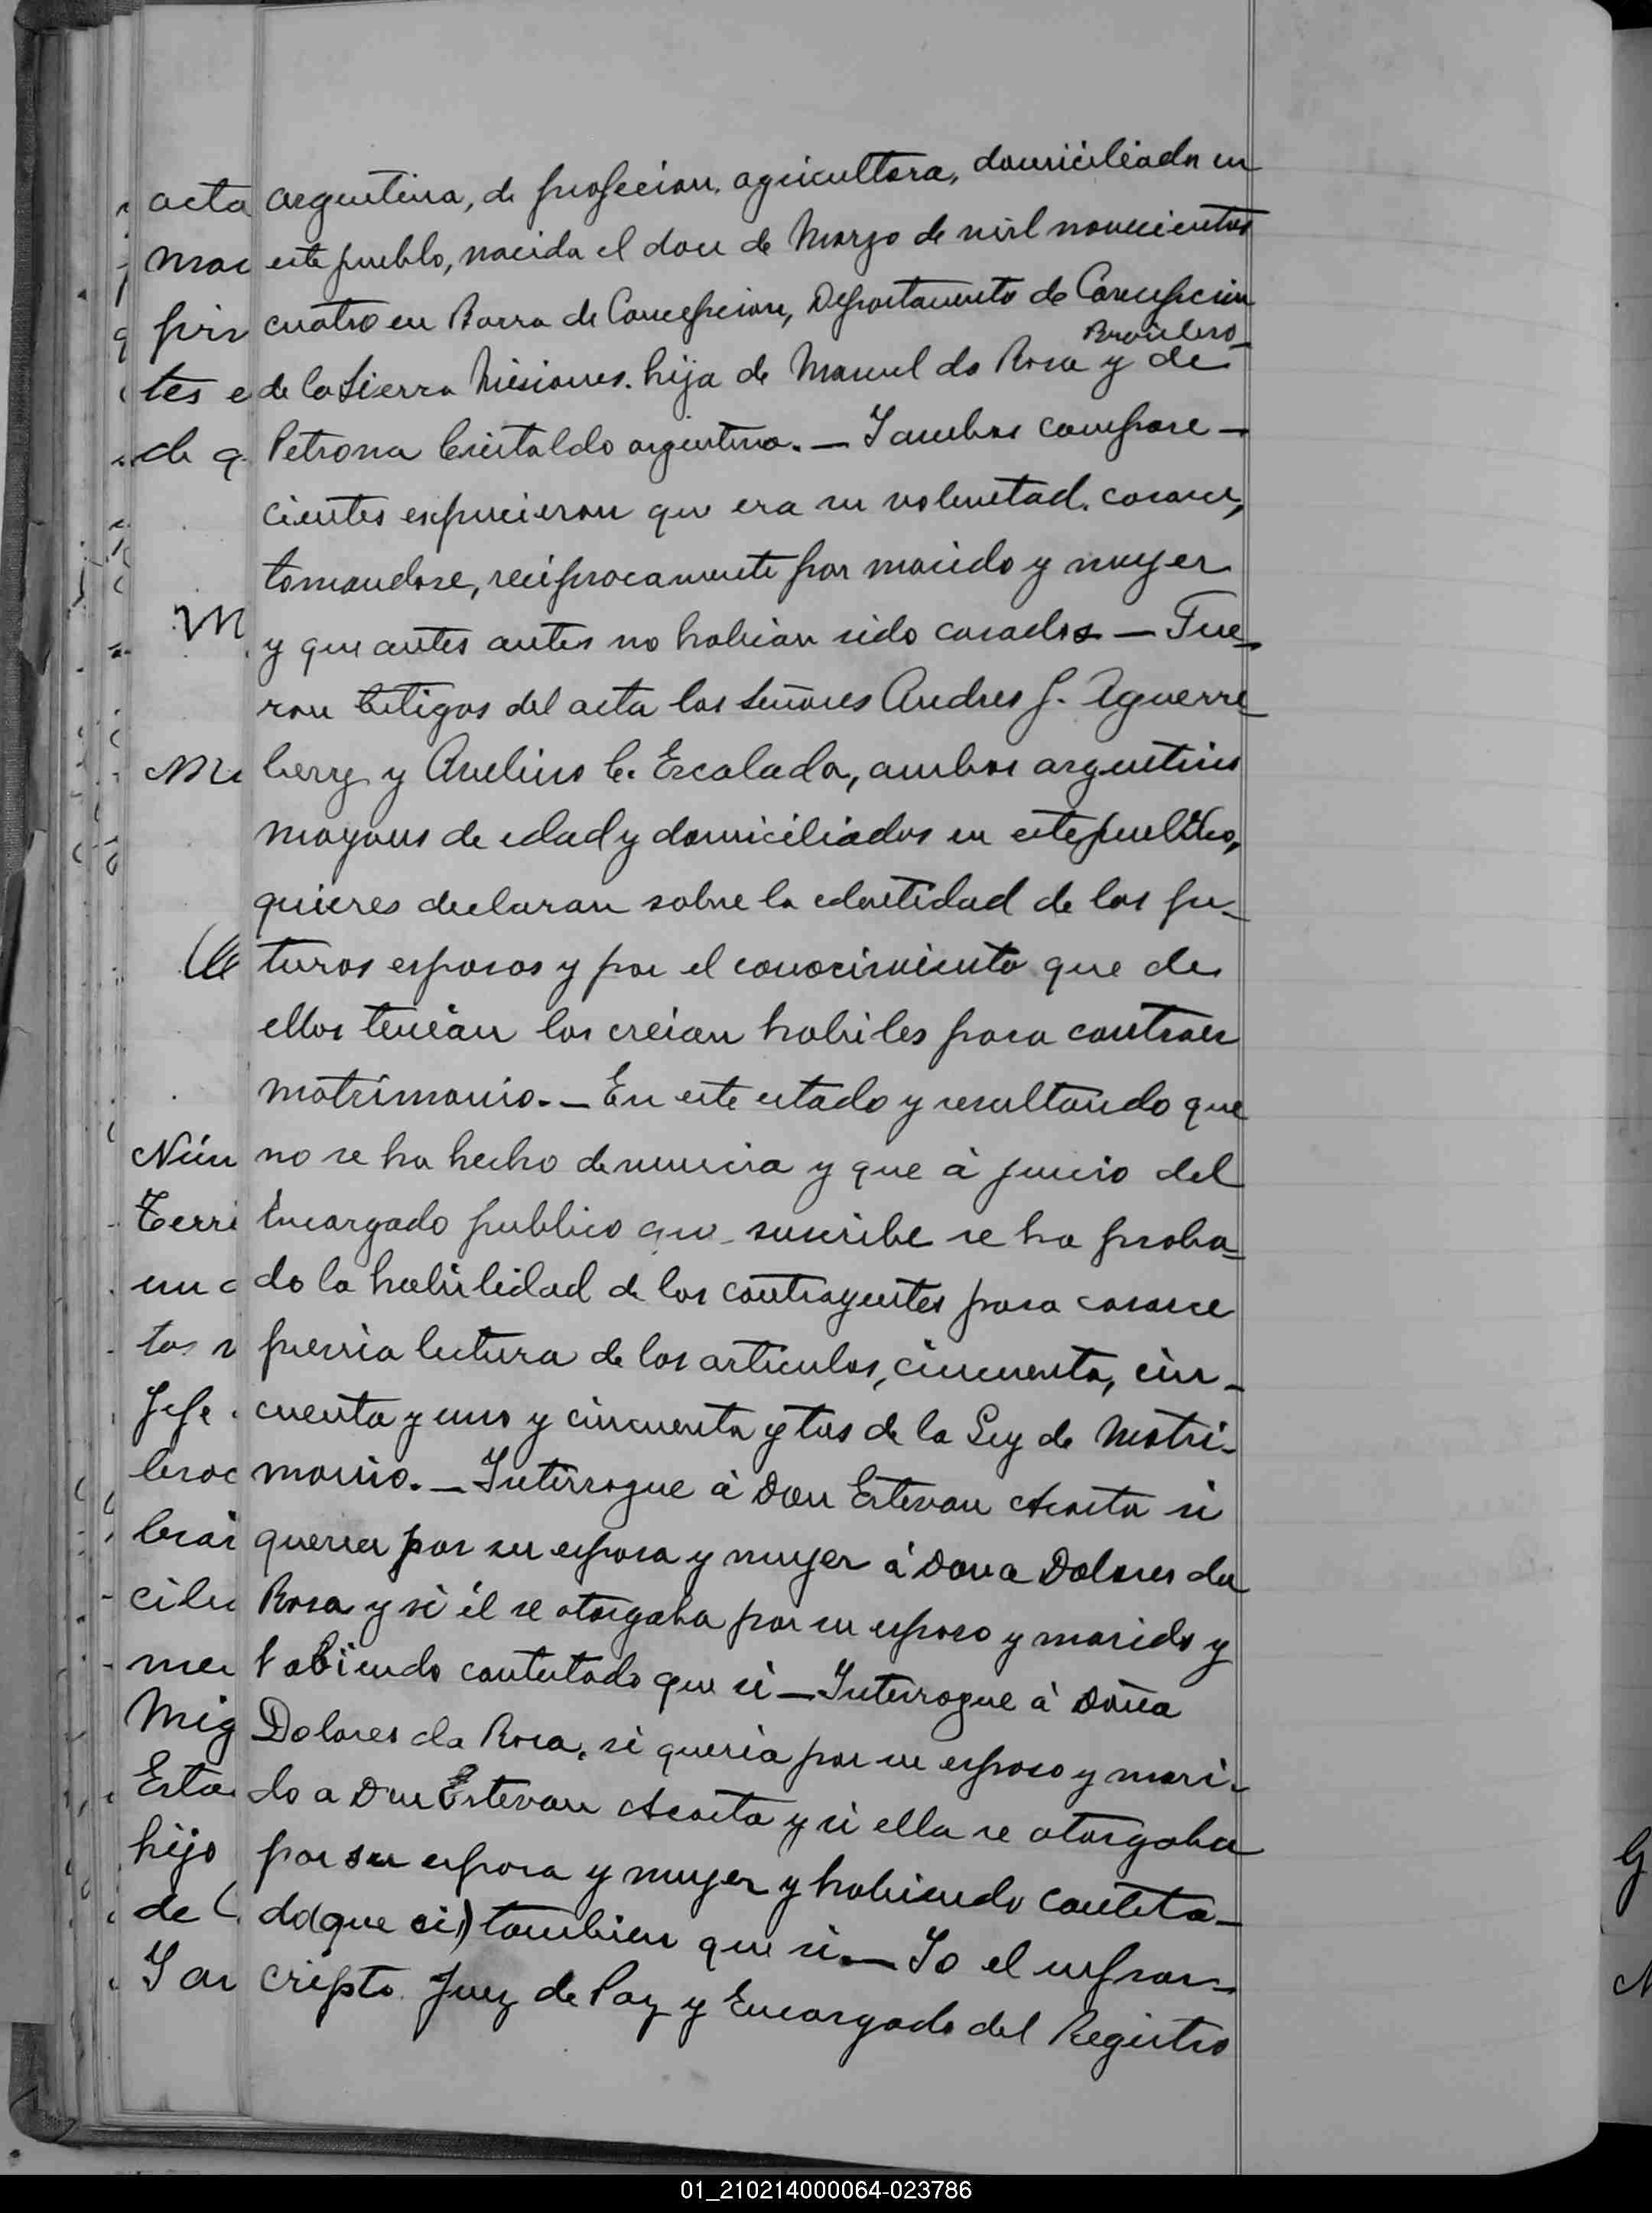 argentina, de profecion, agricultora, domiciliada en
este pueblo, nacida el doce de Marzo de mil novecientos
cuatro en Barra de Concepcion, Departamento de Concepcion
Brasilero
de la Sierra Misiones. hija de Manuel da Rosa y de
Petrona Cristaldo argentina. — I ambos compare —
cientes expucieron que era su voluntad, casarce,
tomandose, reciprocamente por marido y muger
y que antes antes no habian sido casados — Fue-
ron testigos del acta los Señores Andres J. Aguerre
berry y Avelino C. Escalada, ambos argentinos
mayores de edad y domiciliados en este pueblo,
quienes declaran sobre la edentidad de los fu-
turos esposos y por el conocimiento que de
ellos tenian los creian habiles para contraer
matrimonio. — En este estado y resultando que
no se ha hecho denuncia y que à juicio del
Encargado publico que suscribe se ha proba-
do la habilidad de los contrayentes para casarce
previa lectura de los articulos, cincuenta, cin-
cuenta y uno y cincuenta y tres de la Ley de Matri-
monio. — Interrogue à Don Estevan Acosta si
queria por su esposa y muger à Dona Dolores da
Rosa y si él se otorgaba por su esposo y marido y
habiendo contestado que si — Interrogue à Doña
Dolores da Rosa, si queria por su esposo y mari-
do a Don Estevan Acosta y si ella se otorgaba
por su esposa y muger y habiendo contesta-
do (que si) tambien que si. — Yo el infras-
cripto Juez de Paz y Encargado del Registro
acta
pri
tes e
de q
M
Núm
Terri
un
tos
Jefe
brac
cili
me
Mig
Esta
hijo
de
I a
01_210214000064-023786